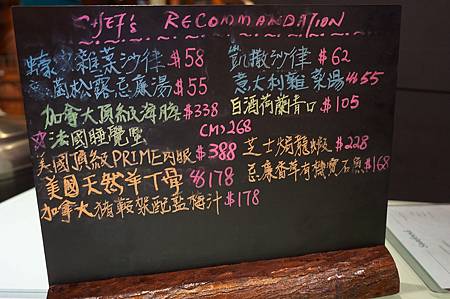 CHEF's RECOMMANDATION
雜菜沙律 $58
凱撒沙律 $62
菌松露忌廉湯 $55
意大利雜菜湯 $55
加拿大頂級海膽 $338
白酒荷蘭青口 $105
法國睡覺蠔 (M) 268
美國頂級PRIME肉眼 $388
芝士焗龍蝦 $228
美國天然羊丁骨 $178
忌廉香草有機寶石魚 $168
加拿大豬鞍架配藍梅汁 $178